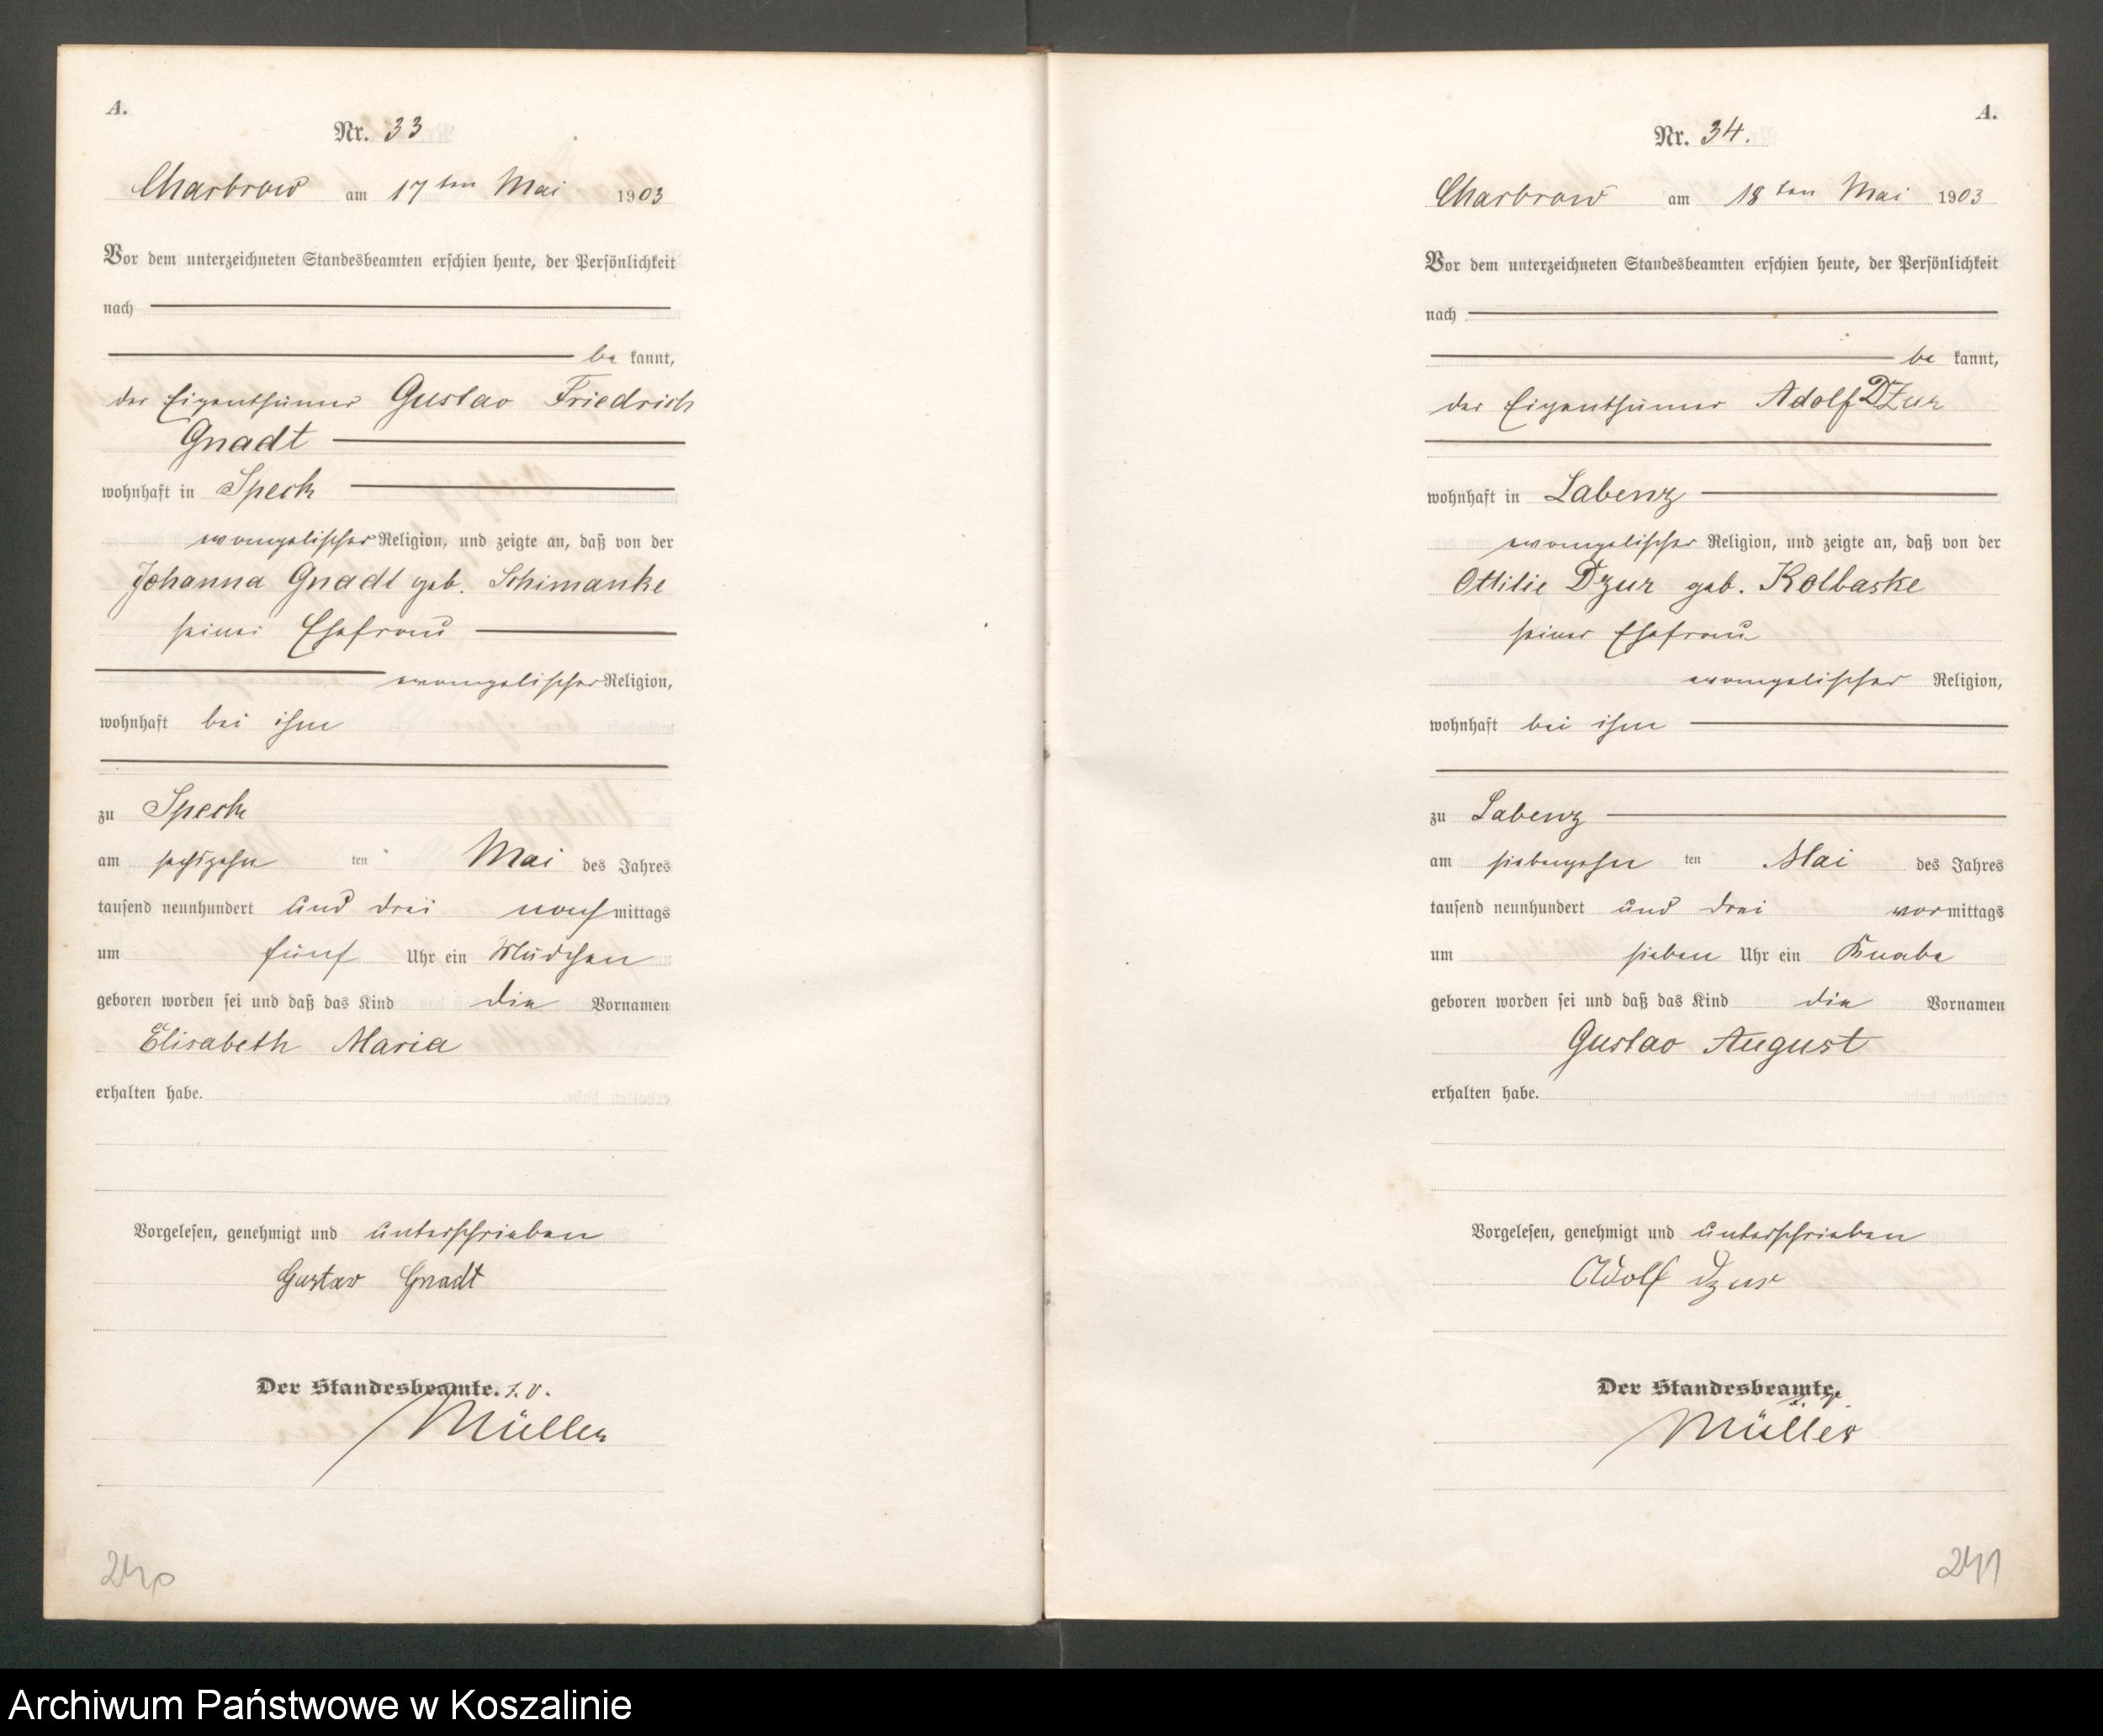 A.
Nr. 33
Charbrow am 17ten Mai 1903
Vor dem unterzeichneten Standesbeamten erschien heute, der Persönlichkeit
nach
be kannt,
der Eigenthümer Gustav Friedrich
Gnadt
wohnhaft in Speck
evangelischer Religion, und zeigte an, daß von der
Johanna Gnadt geb. Schimanke
seiner Ehefrau
evangelischer Religion,
wohnhaft bei ihm
zu Speck
am sechszehn ten Mai des Jahres
tausend neunhundert und drei nachmittags
um fünf Uhr ein Mädchen
geboren worden sei und daß das Kind die Vornamen
Elisabeth Maria
erhalten habe.
Vorgelesen, genehmigt und unterschrieben
Gustav Gnadt
Der Standesbeamte.
Müller
240
A.
Nr. 34.
Charbrow am 18ten Mai 1903
Vor dem unterzeichneten Standesbeamten erschien heute, der Persönlichkeit
nach
be kannt,
der Eigenthümer Adolf Dzur
wohnhaft in Labenz
evangelischer Religion, und zeigte an, daß von der
Ottilie Dzur geb. Kolbaske
seiner Ehefrau
evangelischer Religion,
wohnhaft bei ihm
zu Labenz
am siebenzehn ten Mai des Jahres
tausend neunhundert und drei vormittags
um sieben Uhr ein Knabe
geboren worden sei und daß das Kind die Vornamen
Gustav August
erhalten habe.
Vorgelesen, genehmigt und unterschrieben
Adolf Dzur
Der Standesbeamte.
Müller
241
Archiwum Państwowe w Koszalinie